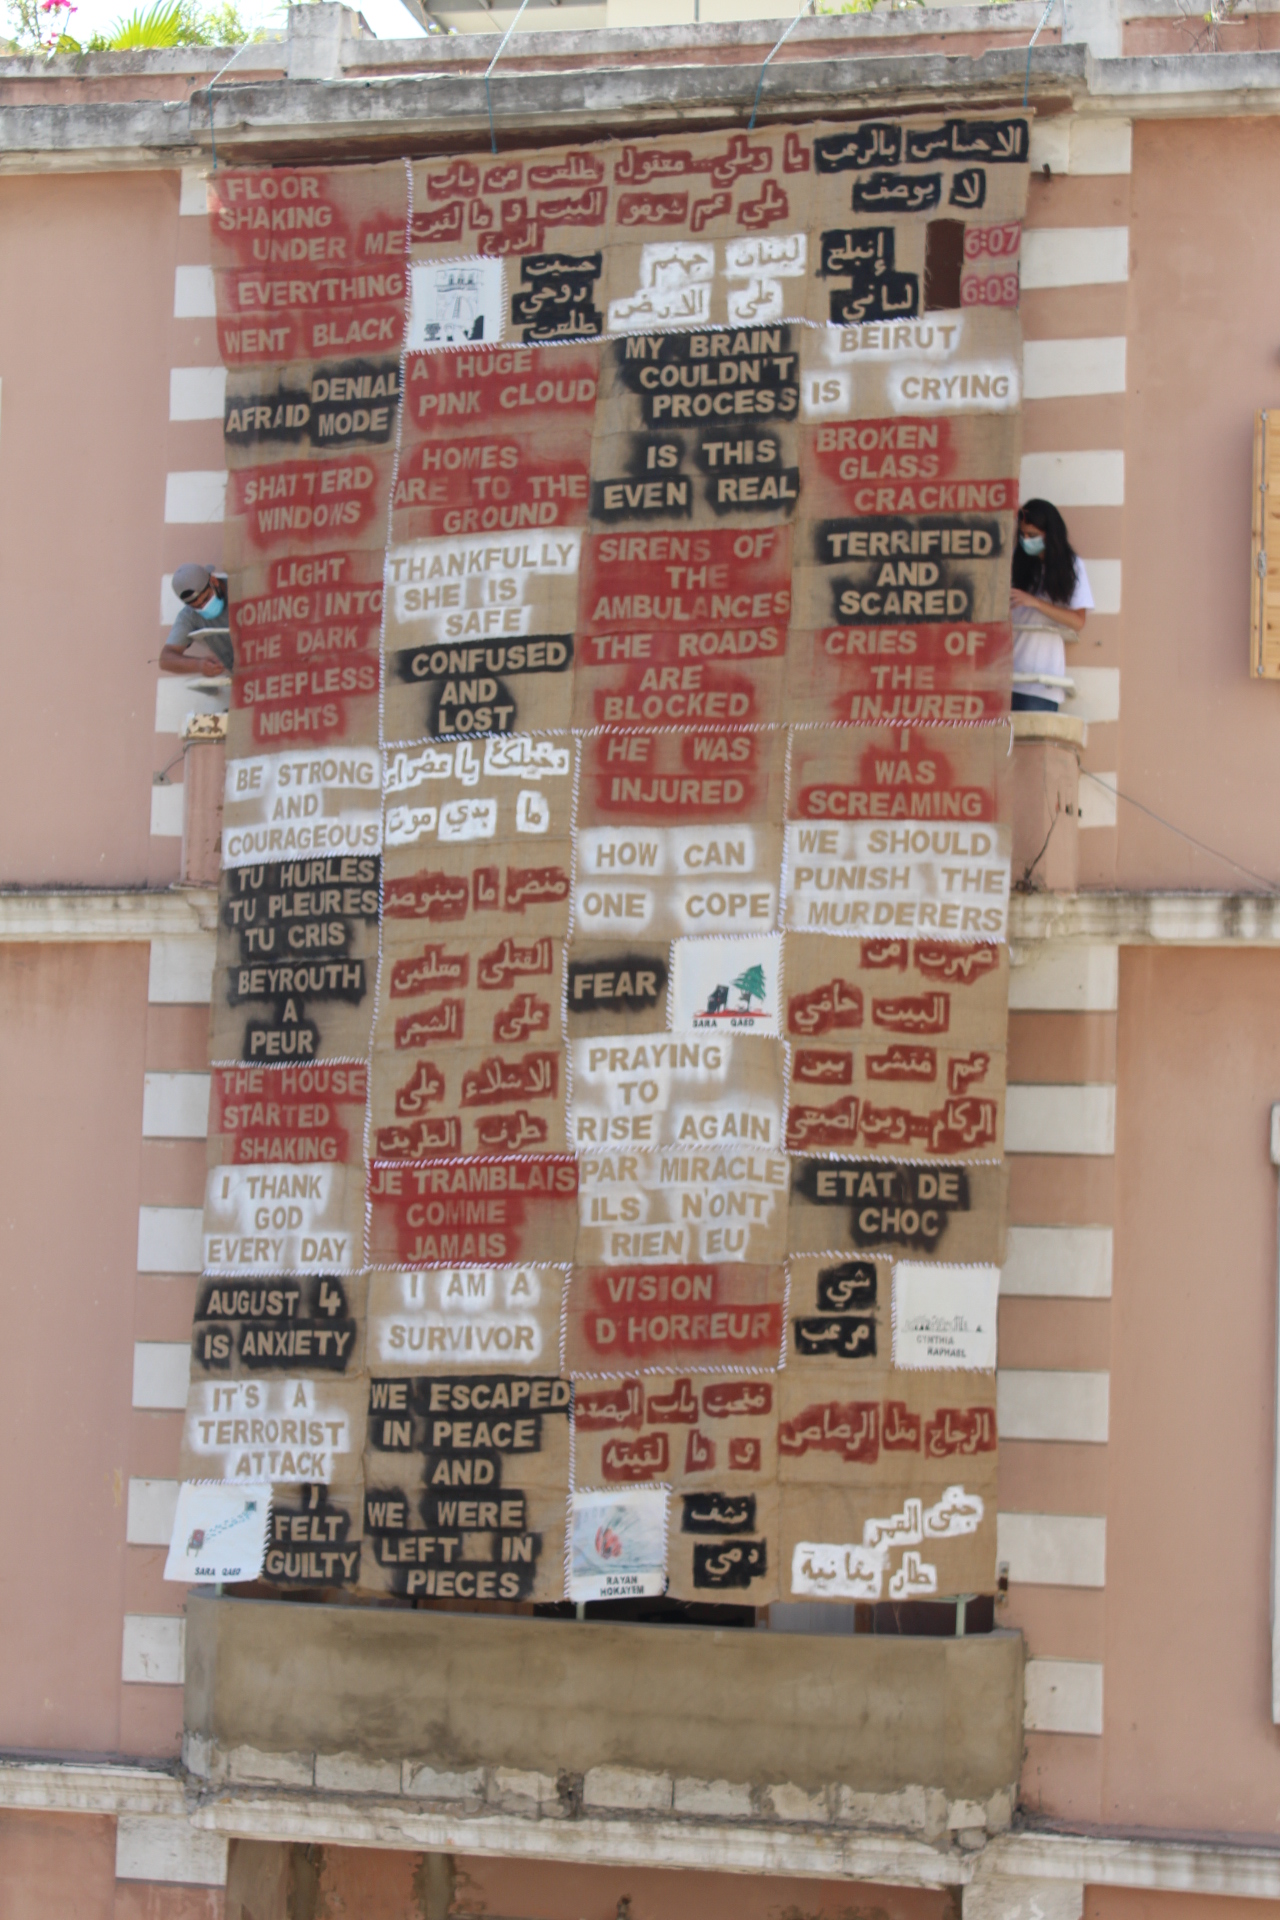 FLOOR
SHAKING
UNDER ME
EVERYTHING
WENT BLACK
يا ويلي... معقول
يلي عم شوفو
طلعت من باب
البيت و ما لقيت
الدرج
الاحساس بالرعب
لا يوصف
حسيت
روحي
طلعت
لبنان جهنم
على الارض
إنبلع
لساني
6:07
6:08
AFRAID
DENIAL
MODE
A HUGE
PINK CLOUD
MY BRAIN
COULDN'T
PROCESS
BEIRUT
IS CRYING
SHATTERD
WINDOWS
HOMES
ARE TO THE
GROUND
IS THIS
EVEN REAL
BROKEN
GLASS
CRACKING
LIGHT
COMING INTO
THE DARK
THANKFULLY
SHE IS
SAFE
SIRENS OF
THE
AMBULANCES
TERRIFIED
AND
SCARED
SLEEPLESS
NIGHTS
CONFUSED
AND
LOST
THE ROADS
ARE
BLOCKED
CRIES OF
THE
INJURED
BE STRONG
AND
COURAGEOUS
دخيلك يا عضرا
ما بدي موت
HE WAS
INJURED
I
WAS
SCREAMING
TU HURLES
TU PLEURES
TU CRIS
منضر ما بينوصف
HOW CAN
ONE COPE
WE SHOULD
PUNISH THE
MURDERERS
BEYROUTH
A
PEUR
القتلى معلقين
على الشجر
FEAR
SARA QAED
ضهرت من
البيت حافي
THE HOUSE
STARTED
SHAKING
الاشلاء على
طرف الطريق
PRAYING
TO
RISE AGAIN
عم فتش بين
الركام...وين اصبعي
I THANK
GOD
EVERY DAY
JE TRAMBLAIS
COMME
JAMAIS
PAR MIRACLE
ILS N'ONT
RIEN EU
ETAT DE
CHOC
AUGUST 4
IS ANXIETY
I AM A
SURVIVOR
VISION
D'HORREUR
شي
مرعب
CYNTHIA
RAPHAEL
IT'S A
TERRORIST
ATTACK
WE ESCAPED
IN PEACE
AND
WE WERE
LEFT IN
PIECES
فتحت باب المصعد
و ما لقيته
الزجاج متل الرصاص
SARA QAED
I
FELT
GUILTY
RAYAN
HOKAYEM
نشف
دمي
جفى العمر
طار بثانية